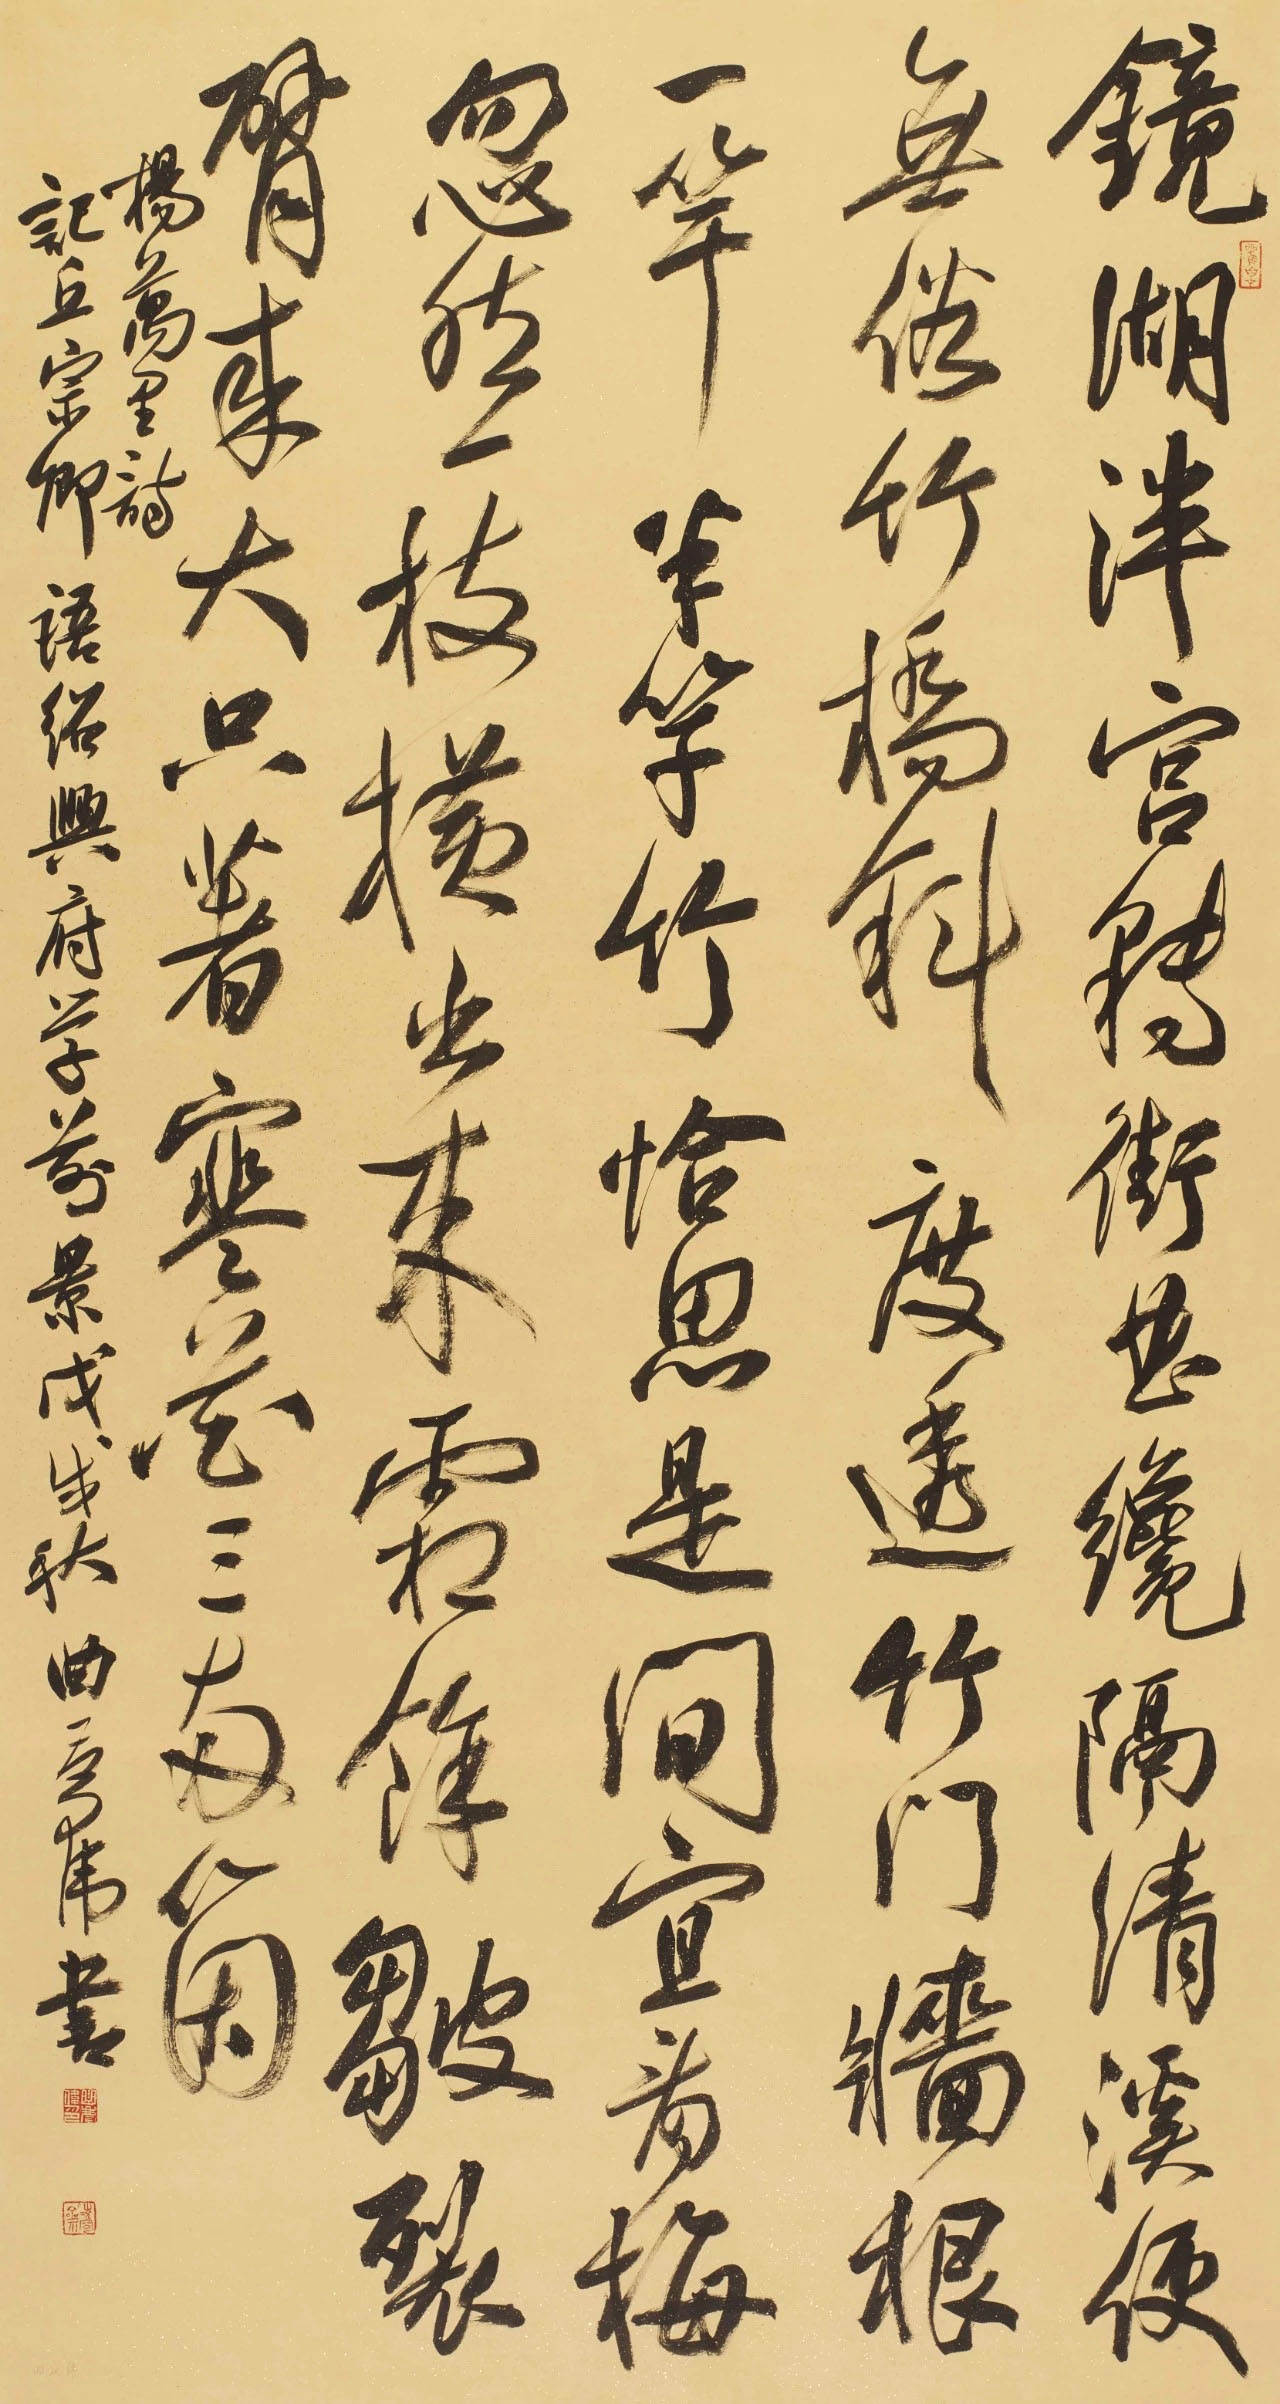 鏡湖泮宮轉街曲纔隔清溪便
無俗竹橋斜度透竹門牆根
一竿半竿竹恰思是間宜著梅
忽然一枝橫出來霜餘皺裂
臂來大只著寒花三兩箇
楊萬里詩
記丘宗卿語紹興府學前景戊戌秋曲慶偉書